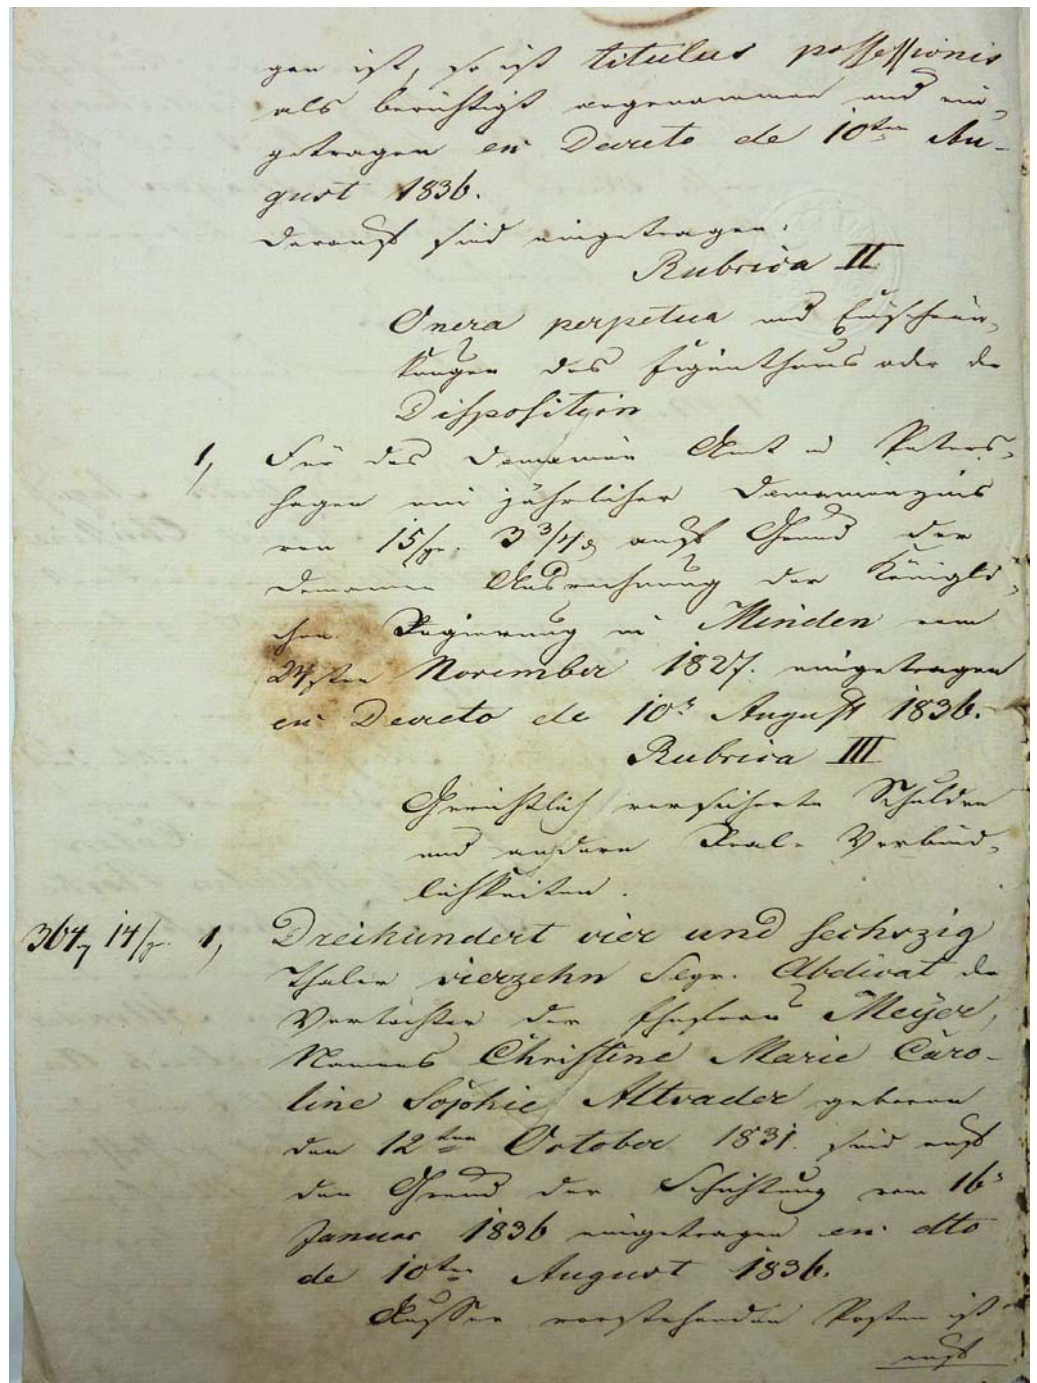 gen ist, so ist titulus possessionis
als berichtigt angenommen und ein-
getragen ex Decreto de 10ten Au-
gust 1836.
Darauf sind eingetragen:
Rubrica II
Onera perpetua und Einschrän-
kungen des Eigenthums oder der
Disposition
1, Für das Domainen Amt in Peters-
hagen ein jährlicher Domainenzins
von 15 sgr. 3 3/4 d auf Grund der
Domainen Ausrechnung der Königli-
chen Regierung in Minden vom
24sten November 1827. eingetragen
ex Decreto de 10t August 1836.
Rubrica III
Gerichtlich versicherte Schulden
und andere Real-Verbind-
lichkeiten.
364 14 sgr. 1, Dreihundert vier und sechszig
Thaler vierzehn Sgr. Abdicat der
Vortochter der Ehefrau Meyer,
Namens Christine Marie Caro-
line Sophie Altvader geboren
den 12ten October 1831. sind auf
den Grund der Schichtung vom 16t
Januar 1836 eingetragen ex dto
de 10ten August 1836.
Ausser vorstehenden Posten ist
auf